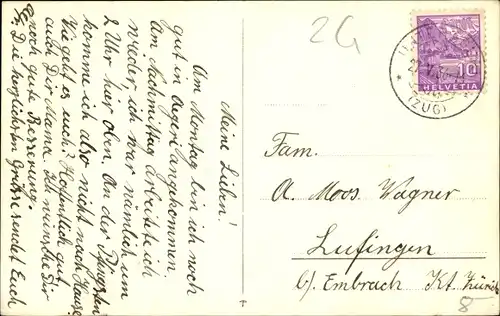 Meine Lieben!
Am Montag bin ich noch
gut in Ägeri angekommen
Am Nachmittag arbeitete ich
wieder, ich war nämlich um
2 Uhr hier oben. An der Pfingsten
komme ich also nicht nach Hause.
Wie geht es euch? Hoffentlich gut
auch Dir Mama. Ich wünsche Dir
noch gute Besserung.
Die herzlichsten Grüsse sendet Euch
2G
HELVETIA
10
(ZUG)
Fam.
A. Moos Wagner
Lufingen
b/ Embrach Kt. Zürich
8